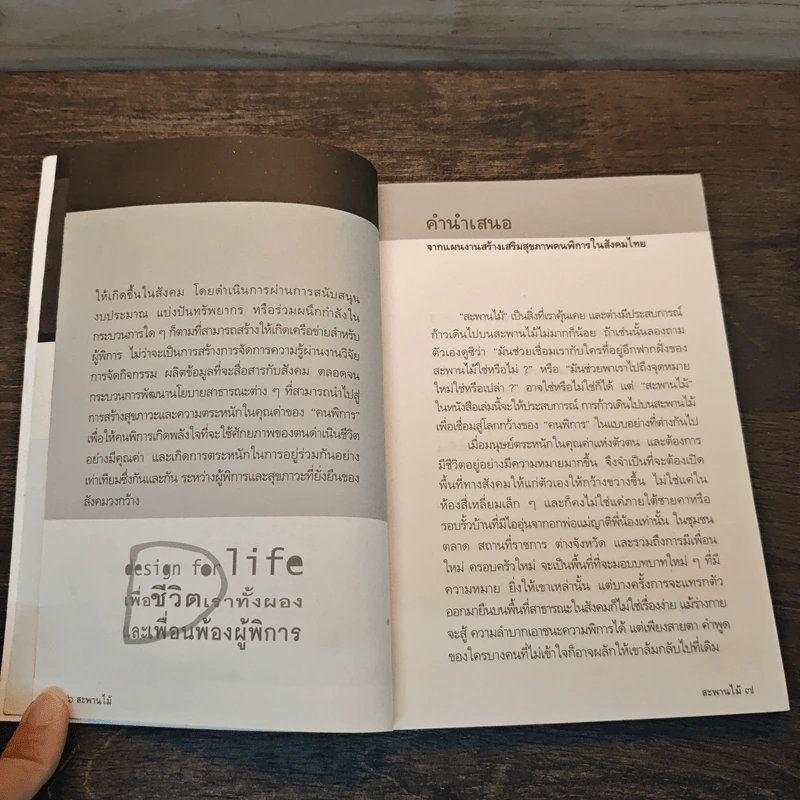 ให้เกิดขึ้นในสังคม โดยดำเนินการผ่านการสนับสนุน
งบประมาณ แบ่งปันทรัพยากร หรือร่วมผนึกกำลังใน
กระบวนการใด ๆ ก็ตามที่สามารถสร้างให้เกิดเครือข่ายสำหรับ
ผู้พิการ ไม่ว่าจะเป็นการสร้างการจัดการความรู้ผ่านงานวิจัย
การจัดกิจกรรม ผลิตข้อมูลที่จะสื่อสารกับสังคม ตลอดจน
กระบวนการพัฒนานโยบายสาธารณะต่าง ๆ ที่สามารถนำไปสู่
การสร้างสุขภาวะและความตระหนักในคุณค่าของ "คนพิการ"
เพื่อให้คนพิการเกิดพลังใจที่จะใช้ศักยภาพของตนดำเนินชีวิต
อย่างมีคุณค่า และเกิดการตระหนักในการอยู่ร่วมกันอย่าง
เท่าเทียมซึ่งกันและกัน ระหว่างผู้พิการและสุขภาวะที่ยั่งยืนของ
สังคมวงกว้าง
design for life
เพื่อชีวิตเราทั้งผอง
และเพื่อนพ้องผู้พิการ
๖ สะพานไม้
คำนำเสนอ
จากแผนงานสร้างเสริมสุขภาพคนพิการในสังคมไทย
"สะพานไม้" เป็นสิ่งที่เราคุ้นเคย และต่างมีประสบการณ์
ก้าวเดินไปบนสะพานไม้ไม่มากก็น้อย ถ้าเช่นนั้นลองถาม
ตัวเองดูซิว่า "มันช่วยเชื่อมเรากับใครที่อยู่อีกฟากฝั่งของ
สะพานไม้ใช่หรือไม่ ?" หรือ "มันช่วยพาเราไปถึงจุดหมาย
ใหม่ใช่หรือเปล่า ?" อาจใช่หรือไม่ใช่ก็ได้ แต่ "สะพานไม้"
ในหนังสือเล่มนี้จะให้ประสบการณ์ การก้าวเดินไปบนสะพานไม้
เพื่อเชื่อมสู่โลกกว้างของ "คนพิการ" ในแบบอย่างที่ต่างกันไป
เมื่อมนุษย์ตระหนักในคุณค่าแห่งตัวตน และต้องการ
มีชีวิตอยู่อย่างมีความหมายมากขึ้น จึงจำเป็นที่จะต้องเปิด
พื้นที่ทางสังคมให้แก่ตัวเองให้กว้างขวางขึ้น ไม่ใช่แค่ใน
ห้องสี่เหลี่ยมเล็ก ๆ และก็คงไม่ใช่แค่ภายใต้ชายคาหรือ
รอบรั้วบ้านที่มีไออุ่นจากอกพ่อแม่ญาติพี่น้องเท่านั้น ในชุมชน
ตลาด สถานที่ราชการ ต่างจังหวัด และรวมถึงการมีเพื่อน
ใหม่ ครอบครัวใหม่ จะเป็นพื้นที่ที่จะมอบบทบาทใหม่ ๆ ที่มี
ความหมาย ยิ่งให้เขาเหล่านั้น แต่บางครั้งการจะแทรกตัว
ออกมายืนบนพื้นที่สาธารณะในสังคมก็ไม่ใช่เรื่องง่าย แม้ร่างกาย
จะสู้ ความลำบากเอาชนะความพิการได้ แต่เพียงสายตา คำพูด
ของใครบางคนที่ไม่เข้าใจก็อาจผลักให้เขาล้มกลับไปที่เดิม
สะพานไม้ ๗